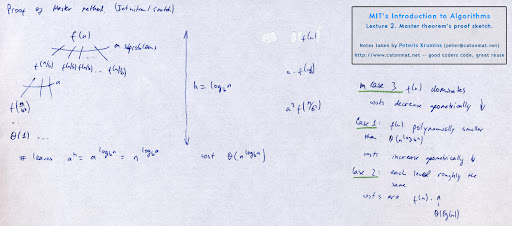 Proof of Master method. (Intuition / sketch)
f(n)
a subproblems
f(n/b) f(n/b) f(n/b) ... f(n/b)
a
f(n/b²)
Θ(1) ...
# leaves a^h = a^(log_b n) = n^(log_b a)
h = log_b n
f(n)
a · f(n/b)
a² f(n/b²)
cost Θ(n^(log_b a))
MIT's Introduction to Algorithms
Lecture 2. Master theorem's proof sketch.
Notes taken by Peteris Krumins (peter@catonmat.net)
http://www.catonmat.net -- good coders code, great reuse
case 3 f(n) dominates
costs decrease geometrically ↓
Case 1: f(n) polynomially smaller
than Θ(n^(log_b a))
costs increase geometrically ↓
Case 2: each level roughly the
same
costs are f(n) · h
Θ(lg(n))